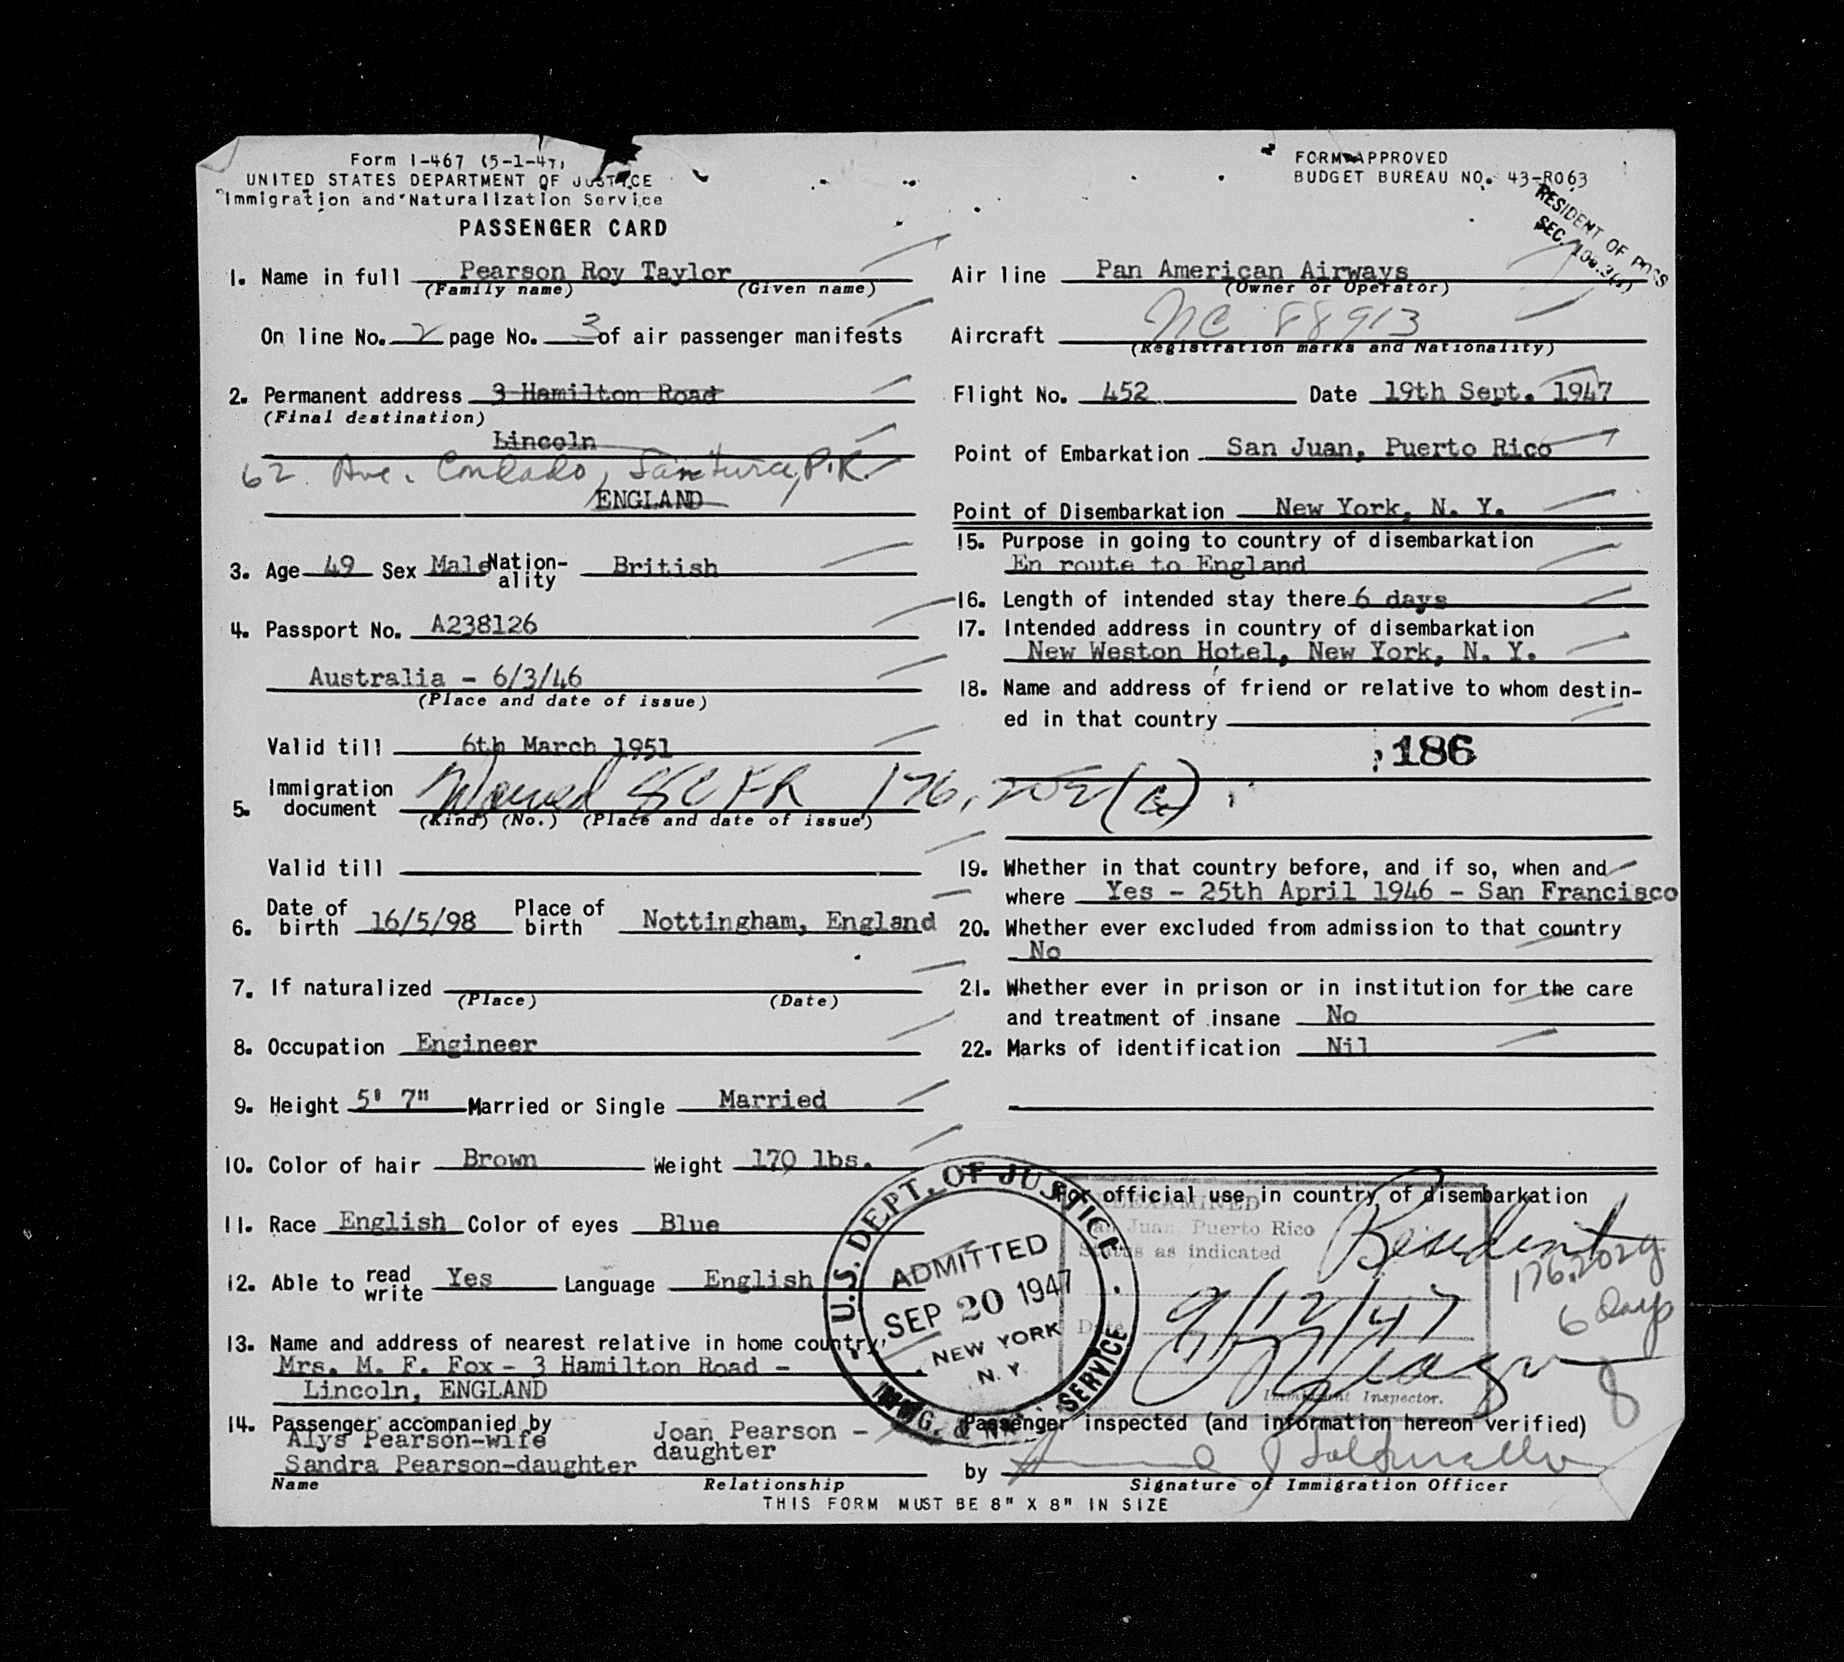 Form I-467 (5-1-47)
UNITED STATES DEPARTMENT OF JUSTICE
Immigration and Naturalization Service
PASSENGER CARD
FORM APPROVED
BUDGET BUREAU NO. 43-R063
RESIDENT OF POSS
SEC.
1. Name in full Pearson Roy Taylor
(Family name) (Given name)
On line No. 2 page No. 3 of air passenger manifests
2. Permanent address 3 Hamilton Road
(Final destination)
Lincoln
62 Ave. Condado, Santurce, P.R.
ENGLAND
3. Age 49 Sex Male Nationality British
4. Passport No. A238126
Australia - 6/3/46
(Place and date of issue)
Valid till 6th March 1951
5. Immigration document Waived 8 CFR 176.202(a)
(Kind) (No.) (Place and date of issue)
Valid till
6. Date of birth 16/5/98 Place of birth Nottingham, England
7. If naturalized
(Place) (Date)
8. Occupation Engineer
9. Height 5' 7" Married or Single Married
10. Color of hair Brown Weight 170 lbs.
11. Race English Color of eyes Blue
12. Able to read write Yes Language English
13. Name and address of nearest relative in home country,
Mrs. M. F. Fox - 3 Hamilton Road -
Lincoln, ENGLAND
14. Passenger accompanied by
Alys Pearson-wife Joan Pearson -
daughter
Sandra Pearson-daughter
Name Relationship
Air line Pan American Airways
(Owner or Operator)
Aircraft NC 88913
(Registration marks and Nationality)
Flight No. 452 Date 19th Sept. 1947
Point of Embarkation San Juan, Puerto Rico
Point of Disembarkation New York, N. Y.
15. Purpose in going to country of disembarkation
En route to England
16. Length of intended stay there 6 days
17. Intended address in country of disembarkation
New Weston Hotel, New York, N. Y.
18. Name and address of friend or relative to whom destin-
ed in that country
186
19. Whether in that country before, and if so, when and
where Yes - 25th April 1946 - San Francisco
20. Whether ever excluded from admission to that country
No
21. Whether ever in prison or in institution for the care
and treatment of insane No
22. Marks of identification Nil
For official use in country of disembarkation
PREEXAMINED
San Juan, Puerto Rico
Status as indicated
Resident
176.202g
6 days
Date 9/12/47
Immigrant Inspector.
8
U.S. DEPT. OF JUSTICE
ADMITTED
SEP 20 1947
NEW YORK
N. Y.
IMMIG. & NAT. SERVICE
Passenger inspected (and information hereon verified)
by
Signature of Immigration Officer
THIS FORM MUST BE 8" X 8" IN SIZE